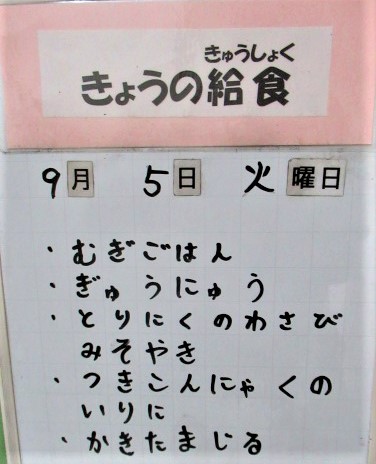 きゅうしょく
きょうの給食
9月 5日 火曜日
・むぎごはん
・ぎゅうにゅう
・とりにくのわさび
みそやき
・つきこんにゃくの
いりに
・かきたまじる